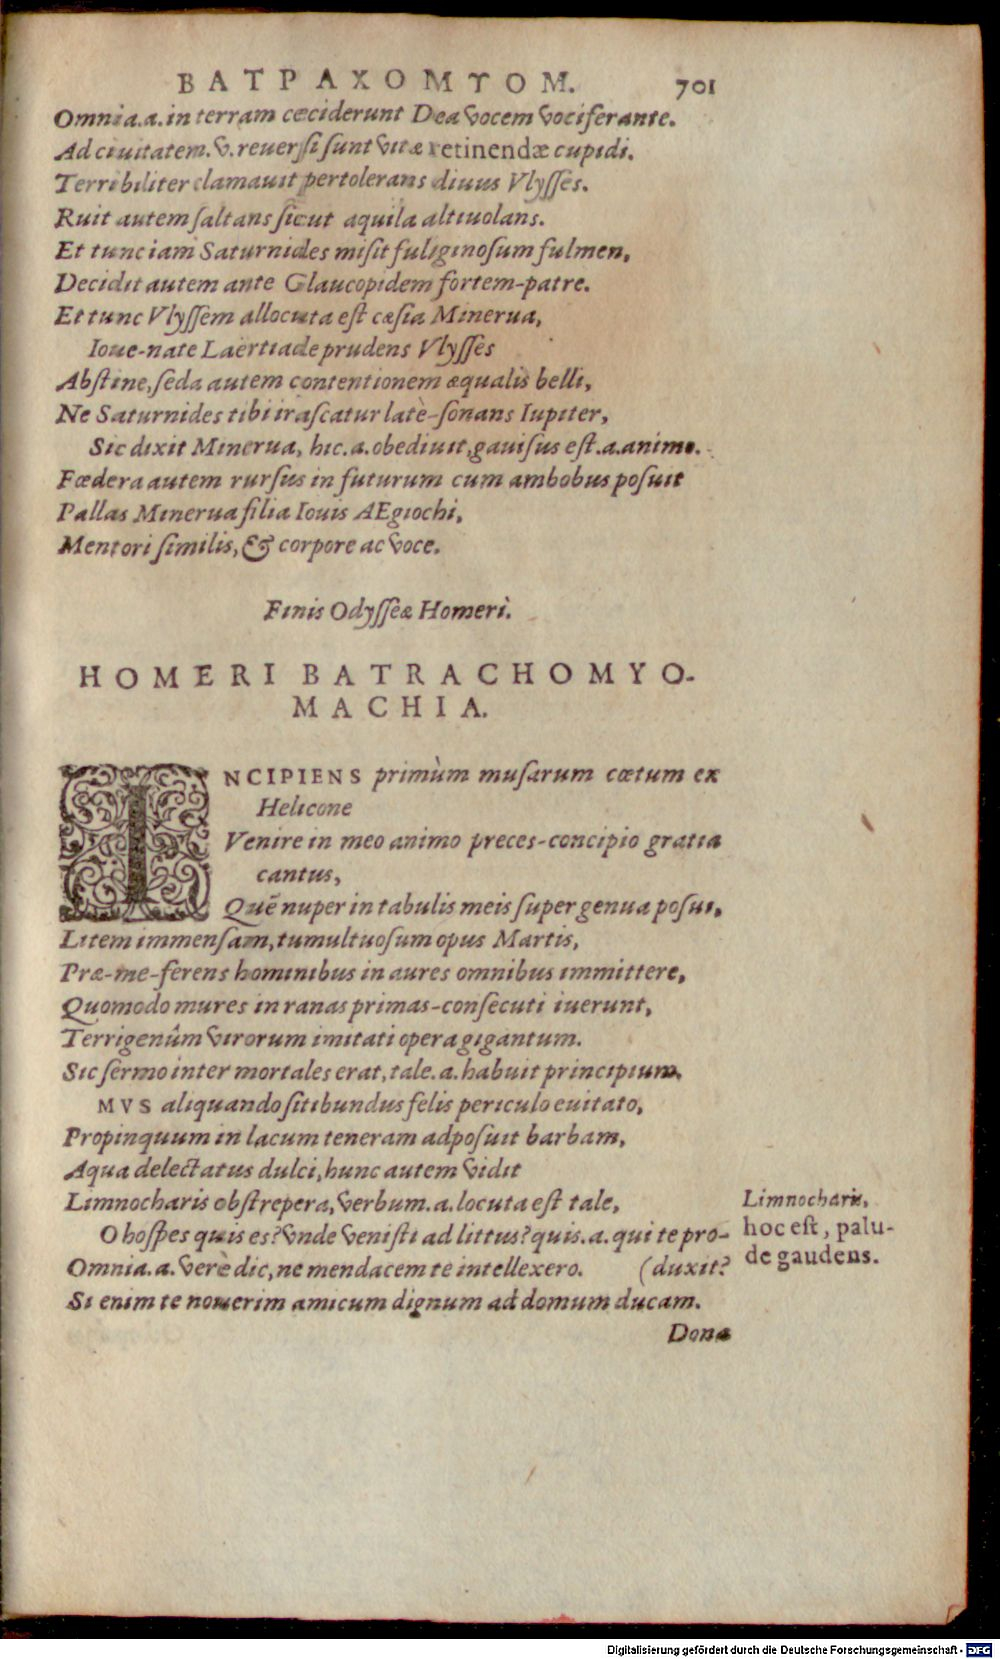 ΒΑΤΡΑΧΟΜΥΟΜ. 701
Omnia.a.in terram ceciderunt Dea vocem vociferante.
Ad ciuitatem.v.reuersi sunt vitæ retinendæ cupidi.
Terribiliter clamauit pertolerans diuus Vlysses.
Ruit autem saltans sicut aquila altiuolans.
Et tunc iam Saturnides misit fuliginosum fulmen,
Decidit autem ante Glaucopidem fortem-patre.
Et tunc Vlyssem allocuta est cæsia Minerua,
Ioue-nate Laërtiade prudens Vlysses
Abstine, seda autem contentionem æqualis belli,
Ne Saturnides tibi irascatur latè-sonans Iupiter,
Sic dixit Minerua, hic.a.obediuit, gauisus est.a.animo.
Fœdera autem rursus in futurum cum ambobus posuit
Pallas Minerua filia Iouis AEgiochi,
Mentori similis, & corpore ac voce.
Finis Odysseæ Homeri.
HOMERI BATRACHOMYO-
MACHIA.
INCIPIENS primùm musarum cœtum ex
Helicone
Venire in meo animo preces-concipio gratia
cantus,
Quē nuper in tabulis meis super genua posui,
Litem immensam, tumultuosum opus Martis,
Præ-me-ferens hominibus in aures omnibus immittere,
Quomodo mures in ranas primas-consecuti iuerunt,
Terrigenûm virorum imitati opera gigantum.
Sic sermo inter mortales erat, tale.a.habuit principium.
MVS aliquando sitibundus felis periculo euitato,
Propinquum in lacum teneram adposuit barbam,
Aqua delectatus dulci, hunc autem vidit
Limnocharis obstrepera, verbum.a.locuta est tale,
O hospes quis es? vnde venisti ad littus? quis.a.qui te pro-
Omnia.a.verè dic, ne mendacem te intellexero. (duxit?
Si enim te nouerim amicum dignum ad domum ducam.
Dona
Limnocharis,
hoc est, palu-
de gaudens.
Digitalisierung gefördert durch die Deutsche Forschungsgemeinschaft - DFG